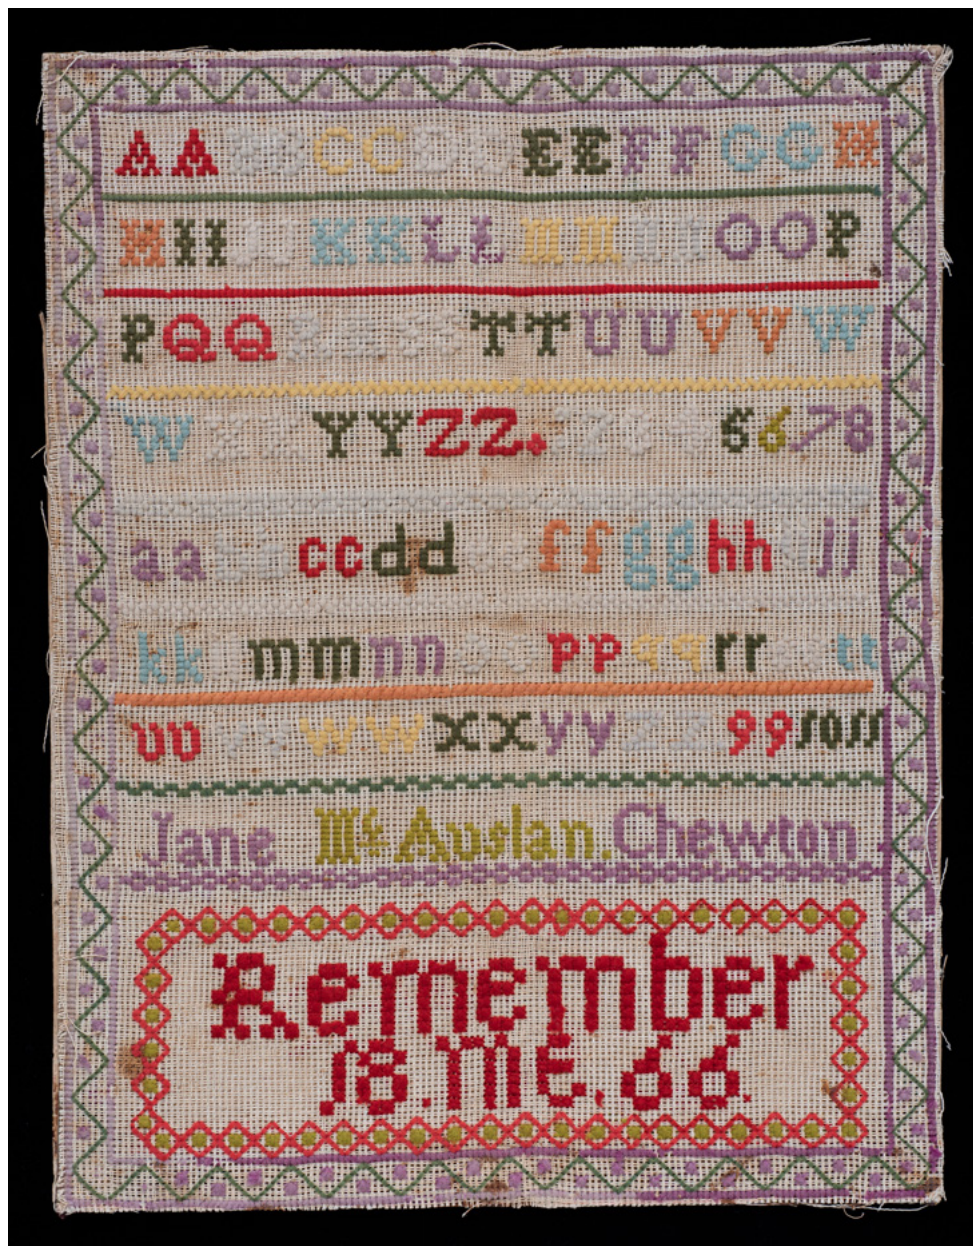 AABBCCDDEEFFGGH
HIIJJKKLLMMNNOOP
PQQRRSSTTUUVVW
WXXYYZZ.12345678
aabbccddeeffgghhiijj
kkllmmnnooppqqrrsstt
uuvvwwxxyyzz991011
Jane Mc Auslan. Chewton
Remember
18.Mt.66.